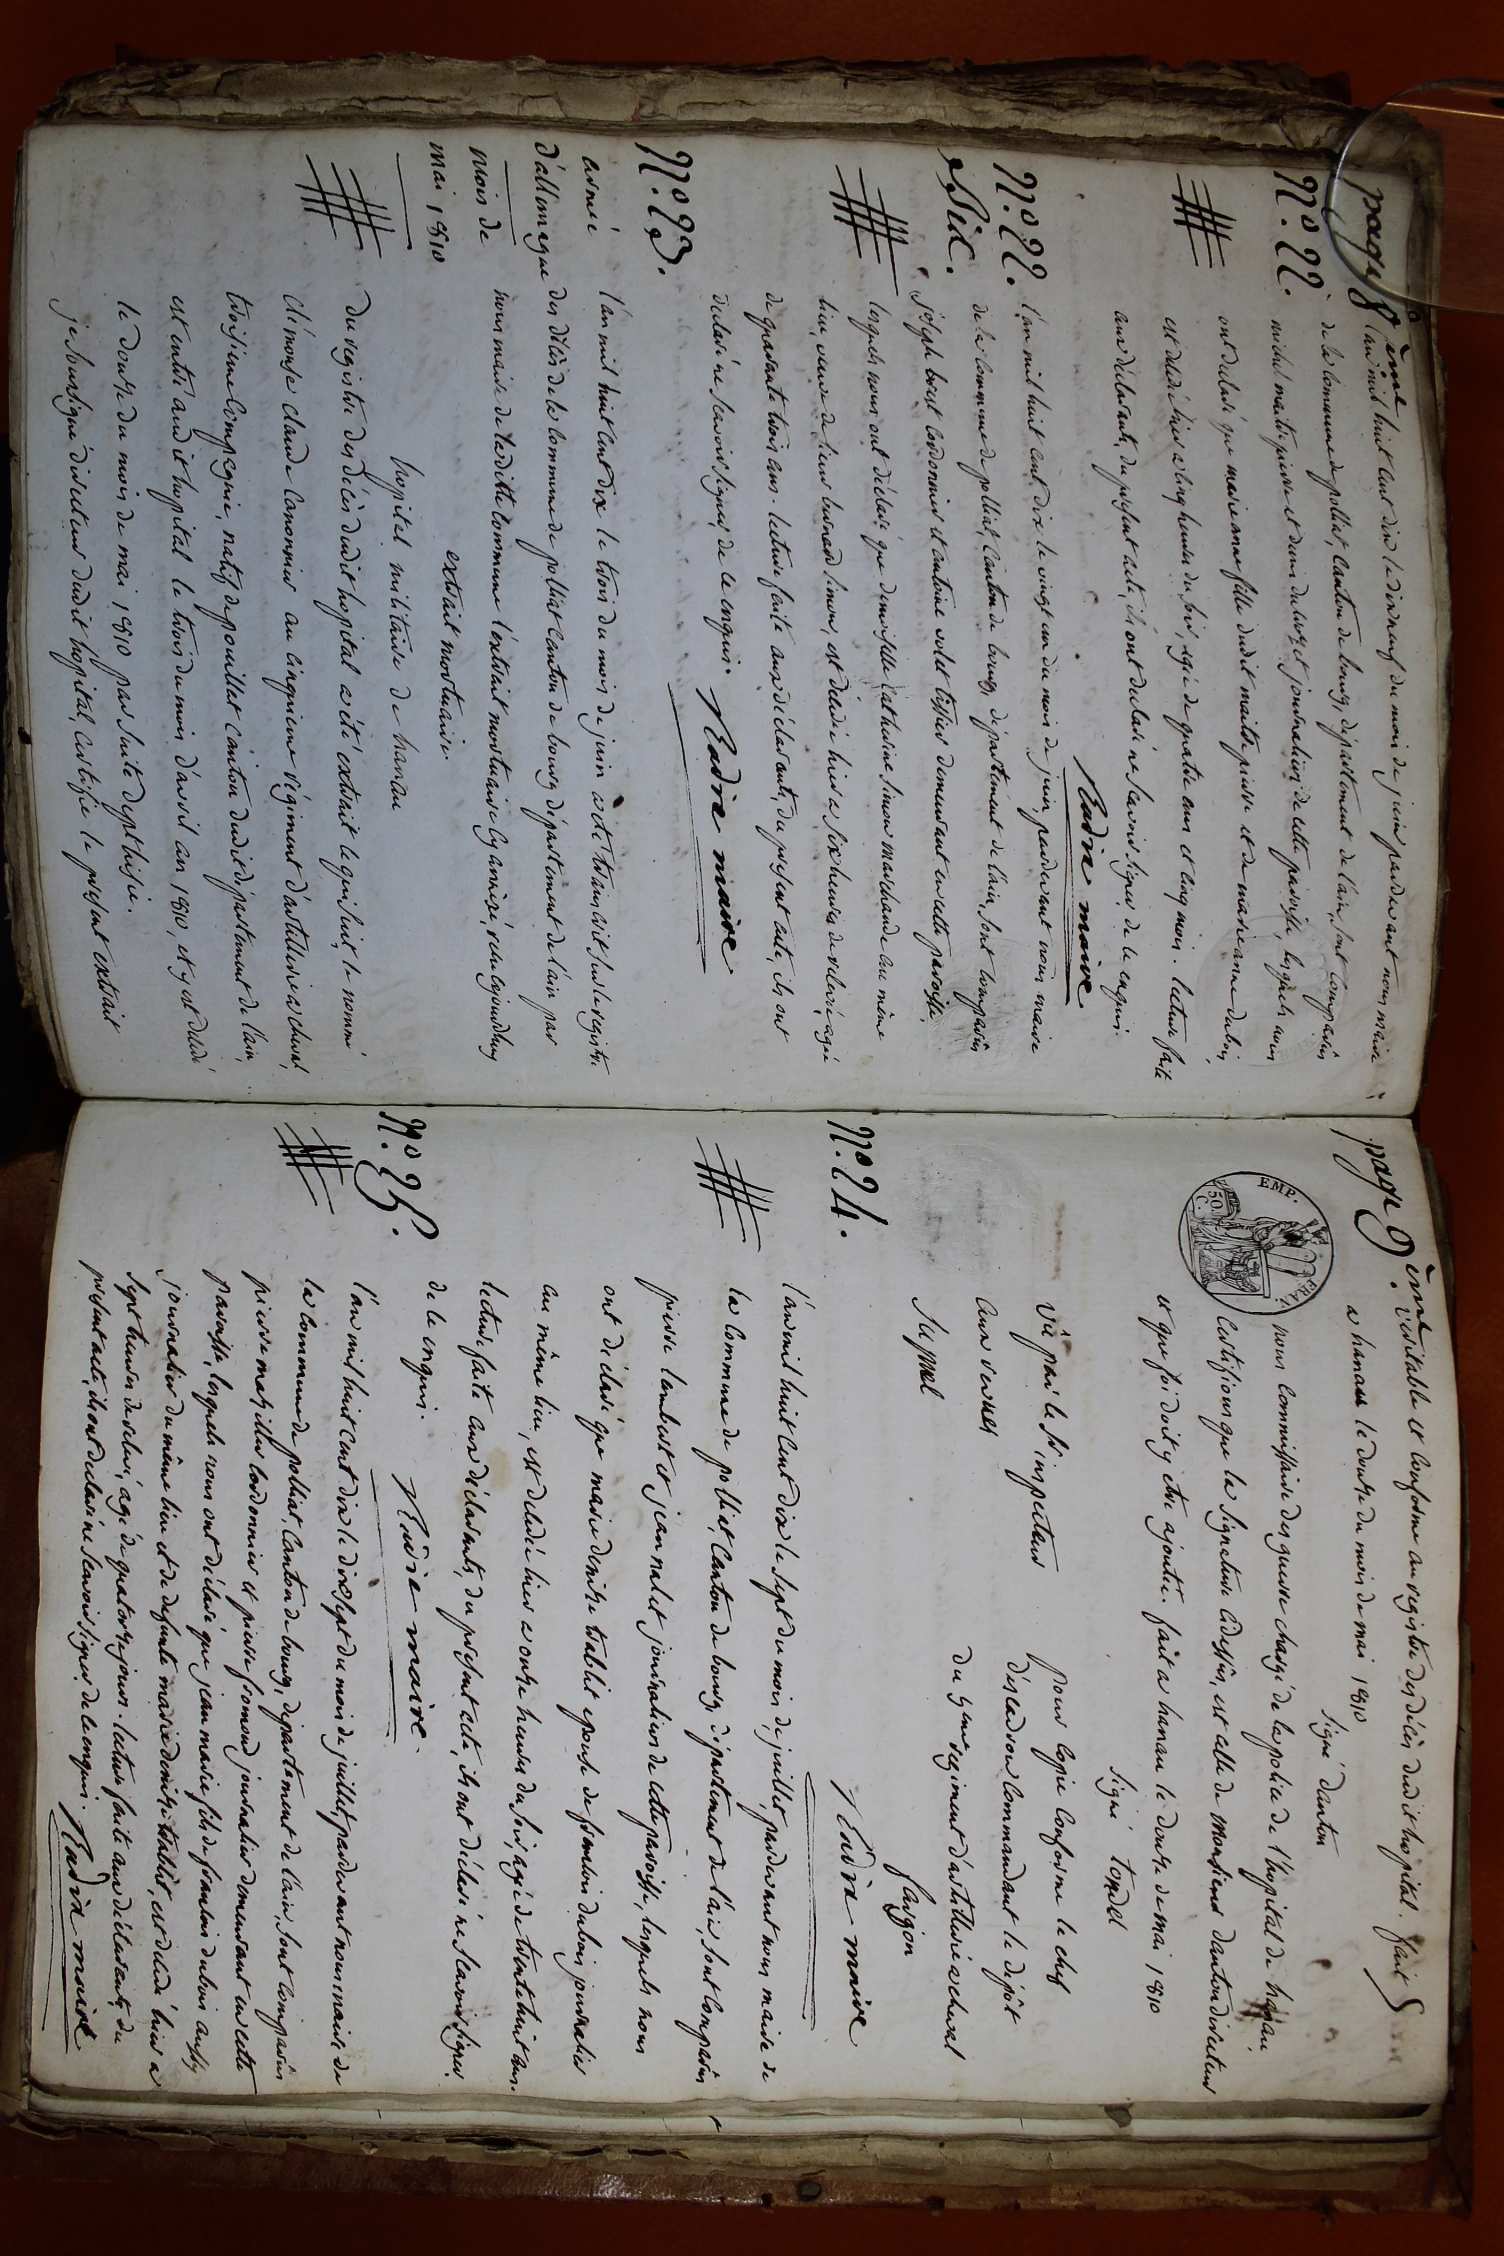 page 8ème
N.° 22.
l'an mil huit cent dix le dixneuf du mois de juin pardevant nous maire
de la commune de polliat, canton de bourg, département de l'ain, sont comparûs
michel maitrepierre et denis journaliers de cette paroisse, lesquels nous
ont déclaré que marieanne fille dudit maitrepierre et de marieanne dubois,
est décédée hier a cinq heures du soir, agée de quatre ans et cinq mois. lecture faite
aux déclarants, du présent acte, ils ont déclaré ne scavoir signer de ce enquis.
maire
N.° 22.
Bis.
l'an mil huit cent dix le vingt un du mois de juin, pardevant nous maire
de la commune de polliat, canton de bourg, département de l'ain, sont comparûs
joseph cordonnier et antoine volet tissier demeurant en cette paroisse,
lesquels nous ont déclaré que demoiselle catherine simon marchande au même
lieu, veuve de sieur simon, est décédée hier a six heures de relevée, agée
de quarante trois ans. lecture faite aux déclarants, du présent acte, ils ont
déclaré ne scavoir signer, de ce enquis. maire
N.° 23.
armée
d'allemagne
mois de
mai 1810
l'an mil huit cent dix le trois du mois de juin acte transcrit sur le registre
des décès de la commune de polliat canton de bourg département de l'ain par
nous maire de laditte commune l'extrait mortuaire cy arrivé, reçu cejourdhuy
extrait mortuaire.
hopital militaire de hanau
du registre des décès dudit hopital a été extrait le qui suit, le nommé
claude canonnier au cinquieme régiment d'artillerie a cheval,
troisième compagnie, natif de pouillat canton dudit département de l'ain,
est entré audit hopital le trois du mois d'avril an 1810, et y est décédé
le douze du mois de mai 1810 par suite de phtisie.
je soussigné directeur dudit hopital, certifie le présent extrait
page 9ème
véritable et conforme au registre des décès dudit hopital. fait
a hanau le douze du mois de mai 1810
signé danton
EMP. FRAN.
50. C.
nous commissaire des guerres chargé de la police de l'hopital de hanau
certifions que la signature cidessus, est celle de monsieur danton directeur
et que foi doit y être ajoutée. fait a hanau le douze de mai 1810
signé
vû par le s. inspecteur
aux revues
pour copie conforme le chef
d'escadron commandant le dépôt
du 5me régiment d'artillerie a cheval
N.° 24.
maire
l'an mil huit cent dix le sept du mois de juillet, pardevant nous maire de
la commune de polliat, canton de bourg, département de l'ain, sont comparûs
pierre lambert et jean nalet journaliers de cette paroisse, lesquels nous
ont déclaré que marie denise trablit epouse de dubois journalier
au même lieu, est décédée hier a onze heures du soir, agée de trentehuit ans.
lecture faite aux déclarants, du présent acte, ils ont déclaré ne scavoir signer
de ce enquis.
maire.
N.° 25.
l'an mil huit cent dix le dixsept du mois de juillet, pardevant nous maire de
la commune de polliat, canton de bourg, département de l'ain, sont comparûs
pierre cordonnier et pierre journalier demeurant en cette
paroisse, lesquels nous ont déclaré que jean marie fils de dubois aussy
journalier du même lieu et de défunte marie denise trablit, est décédé hier a
sept heures de relevé, agé de quatorze jours. lecture faite aux déclarants, du
présent acte, ils ont déclaré ne scavoir signer de ce enquis. maire